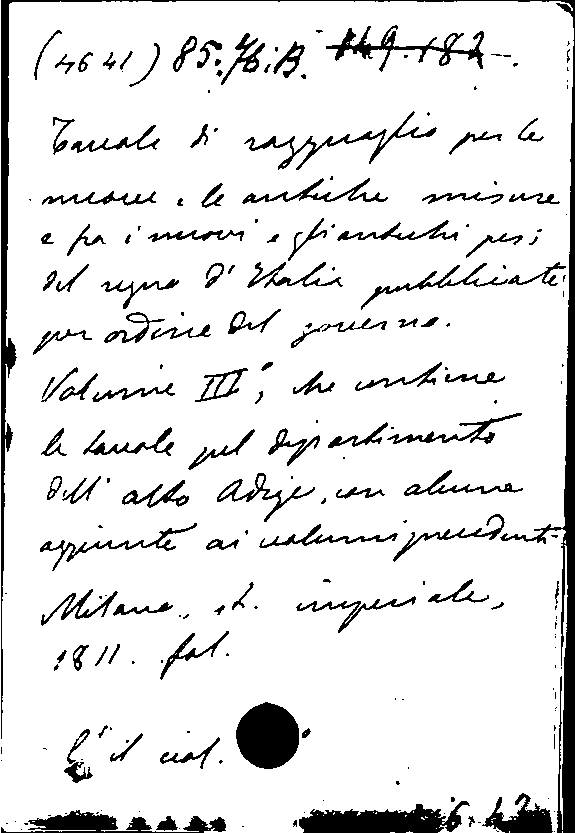 (4641) 85.76.B. 149.182.
Tavole di ragguaglio per le
nuove e le antiche misure
e fra i nuovi e gli antichi pesi
del regno d'Italia pubblicate
per ordine del governo.
Volume III°, che contiene
le tavole pel dipartimento
dell'alto Adige, con alcune
aggiunte ai volumi precedenti
Milano, st. imperiale,
1811. fol.
E' il vol.